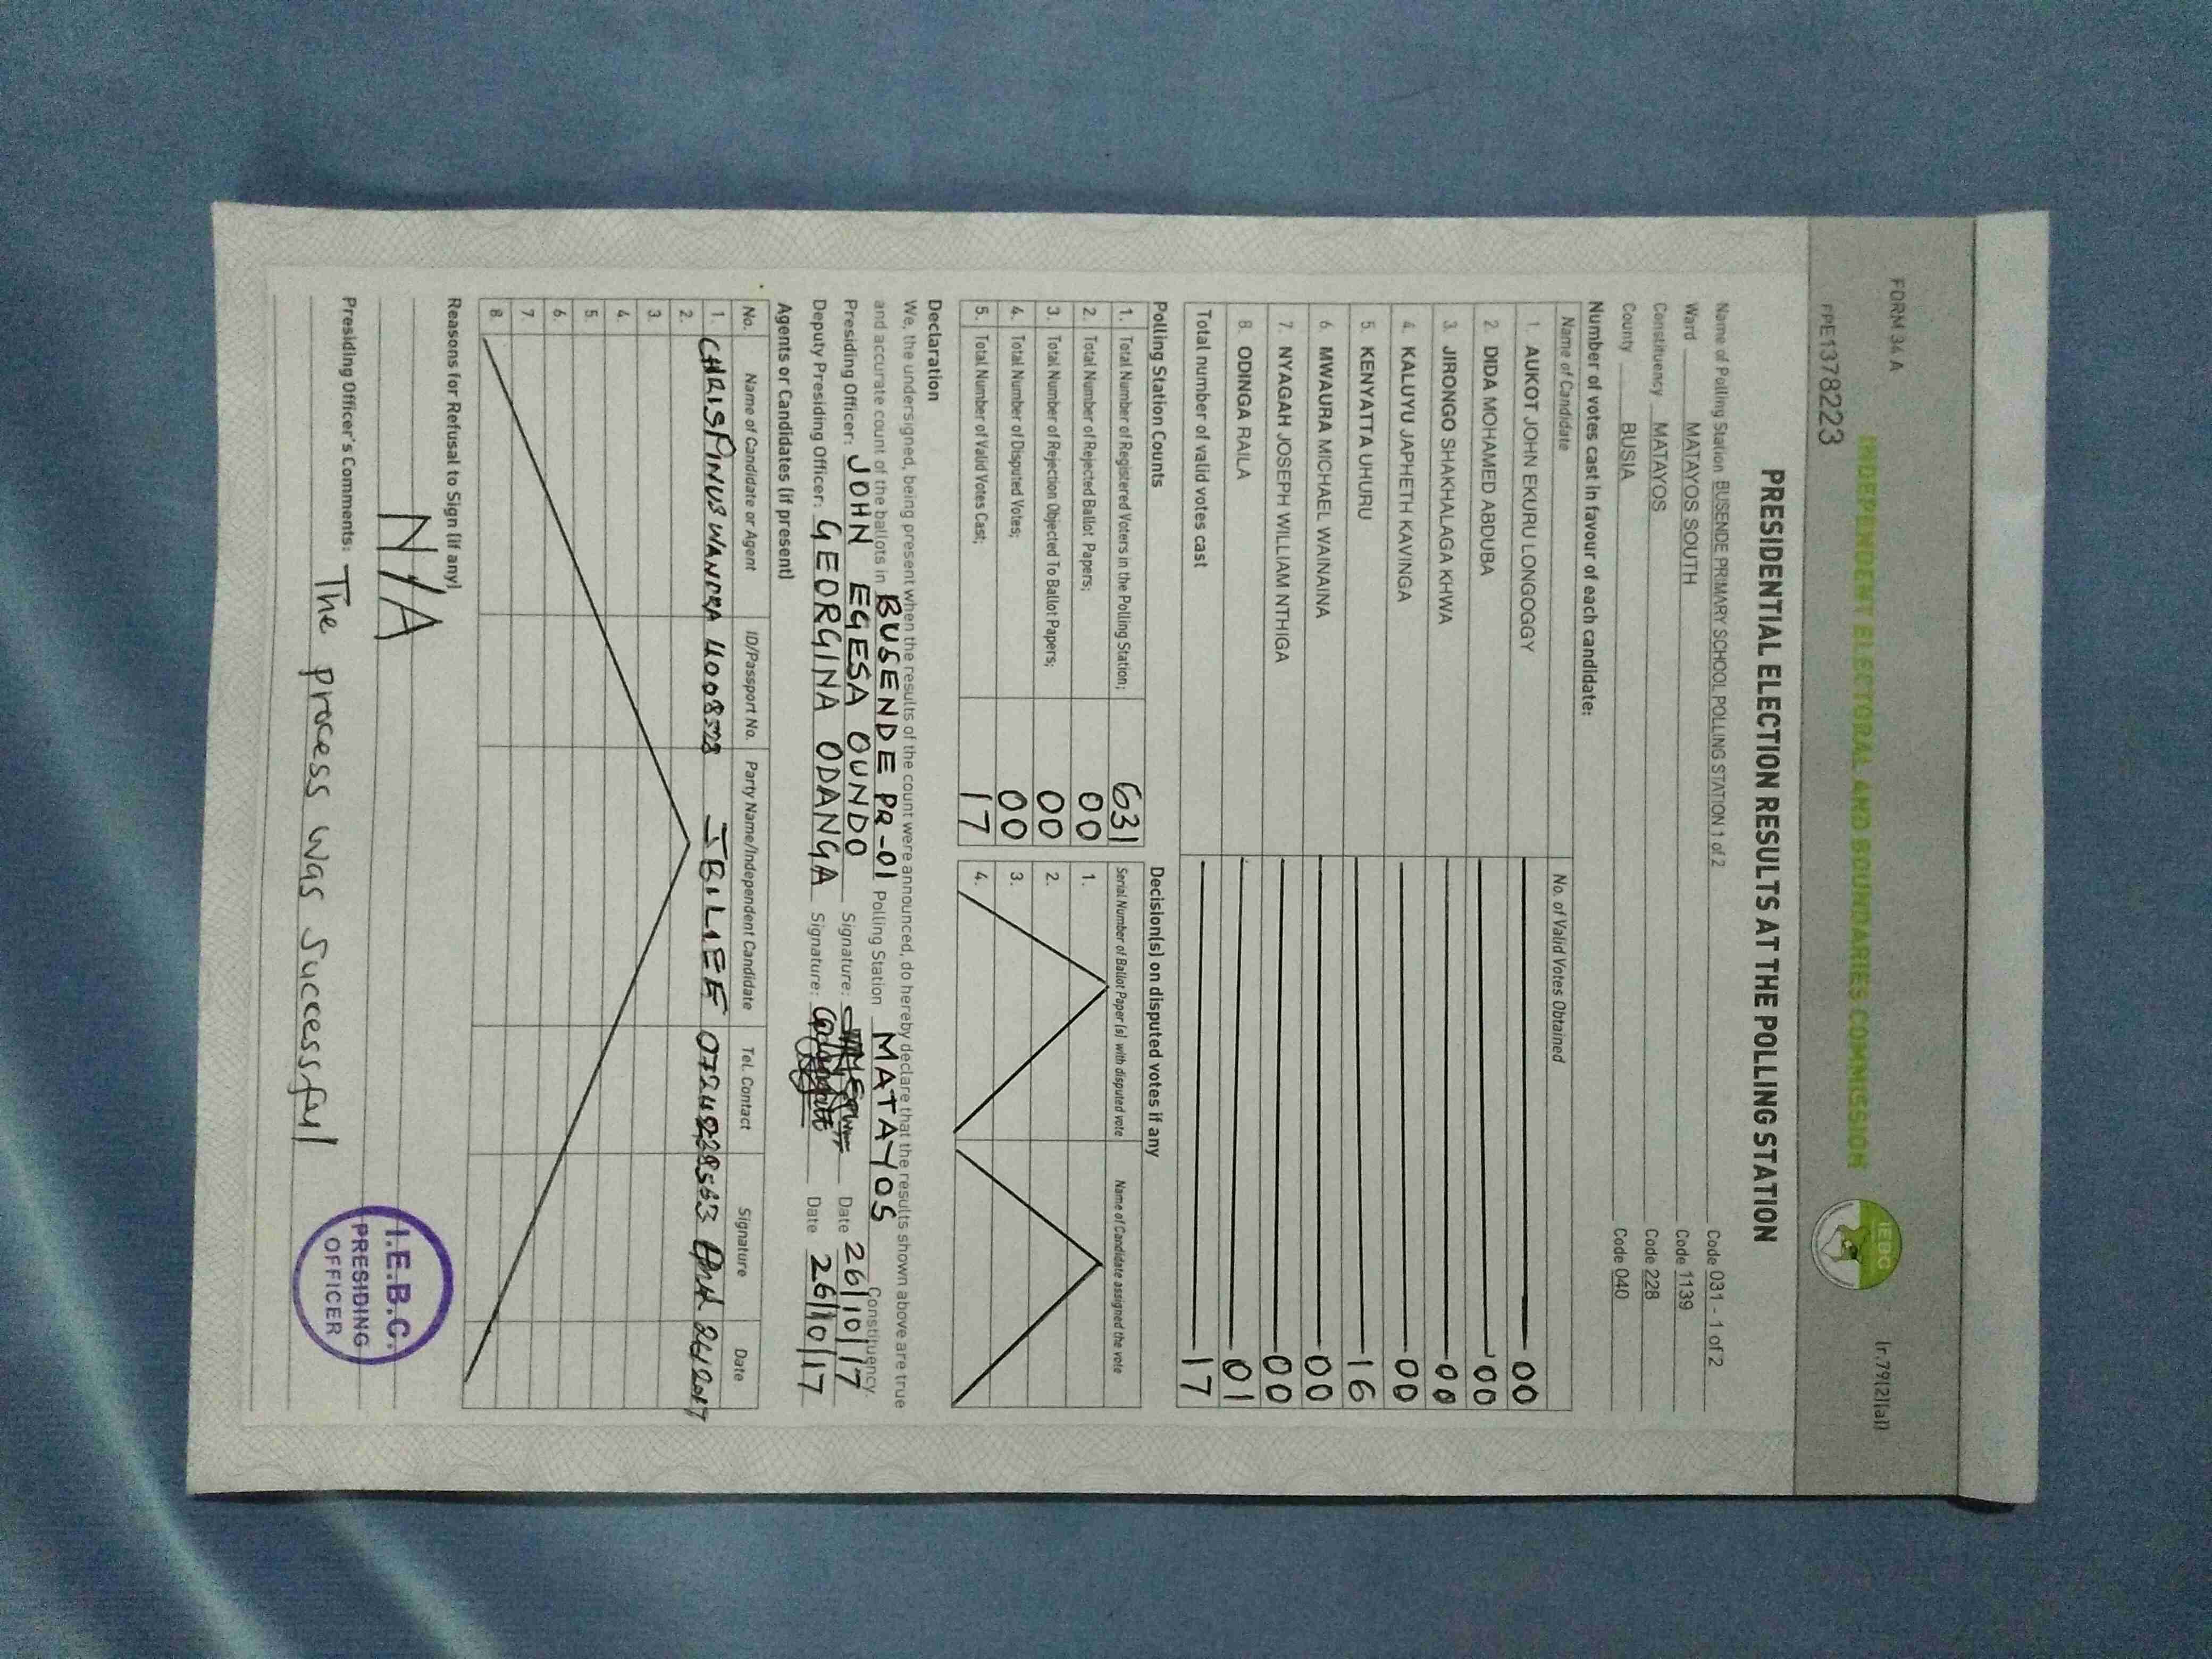 FORM 34 A
(r.79(2)(a))
INDEPENDENT ELECTORAL AND BOUNDARIES COMMISSION
IEBC
FPE1378223
PRESIDENTIAL ELECTION RESULTS AT THE POLLING STATION
Name of Polling Station BUSENDE PRIMARY SCHOOL POLLING STATION 1 of 2 Code 031 - 1 of 2
Ward MATAYOS SOUTH Code 1139
Constituency MATAYOS Code 228
County BUSIA Code 040
Number of votes cast in favour of each candidate:
Name of Candidate No. of Valid Votes Obtained
1. AUKOT JOHN EKURU LONGOGGY 00
2. DIDA MOHAMED ABDUBA 00
3. JIRONGO SHAKHALAGA KHWA 00
4. KALUYU JAPHETH KAVINGA 00
5. KENYATTA UHURU 16
6. MWAURA MICHAEL WAINAINA 00
7. NYAGAH JOSEPH WILLIAM NTHIGA 00
8. ODINGA RAILA 01
Total number of valid votes cast 17
Polling Station Counts
1. Total Number of Registered Voters in the Polling Station; 631
2. Total Number of Rejected Ballot Papers; 00
3. Total Number of Rejection Objected To Ballot Papers; 00
4. Total Number of Disputed Votes; 00
5. Total Number of Valid Votes Cast; 17
Decision(s) on disputed votes if any
Serial Number of Ballot Paper (s) with disputed vote Name of Candidate assigned the vote
1.
2.
3.
4.
Declaration
We, the undersigned, being present when the results of the count were announced, do hereby declare that the results shown above are true
and accurate count of the ballots in BUSENDE PR -01 Polling Station MATAYOS Constituency.
Presiding Officer: JOHN EGESA OUNDO Signature: Date 26/10/17
Deputy Presiding Officer: GEORGINA ODANGA Signature: Date 26/10/17
Agents or Candidates (if present)
No. Name of Candidate or Agent ID/Passport No. Party Name/Independent Candidate Tel. Contact Signature Date
1. CHRISPINUS WANDRA JBILIEE
2.
3.
4.
5.
6.
7.
8.
Reasons for Refusal to Sign (if any)
N/A
Presiding Officer's Comments: The process was successful
I.E.B.C.
PRESIDING
OFFICER